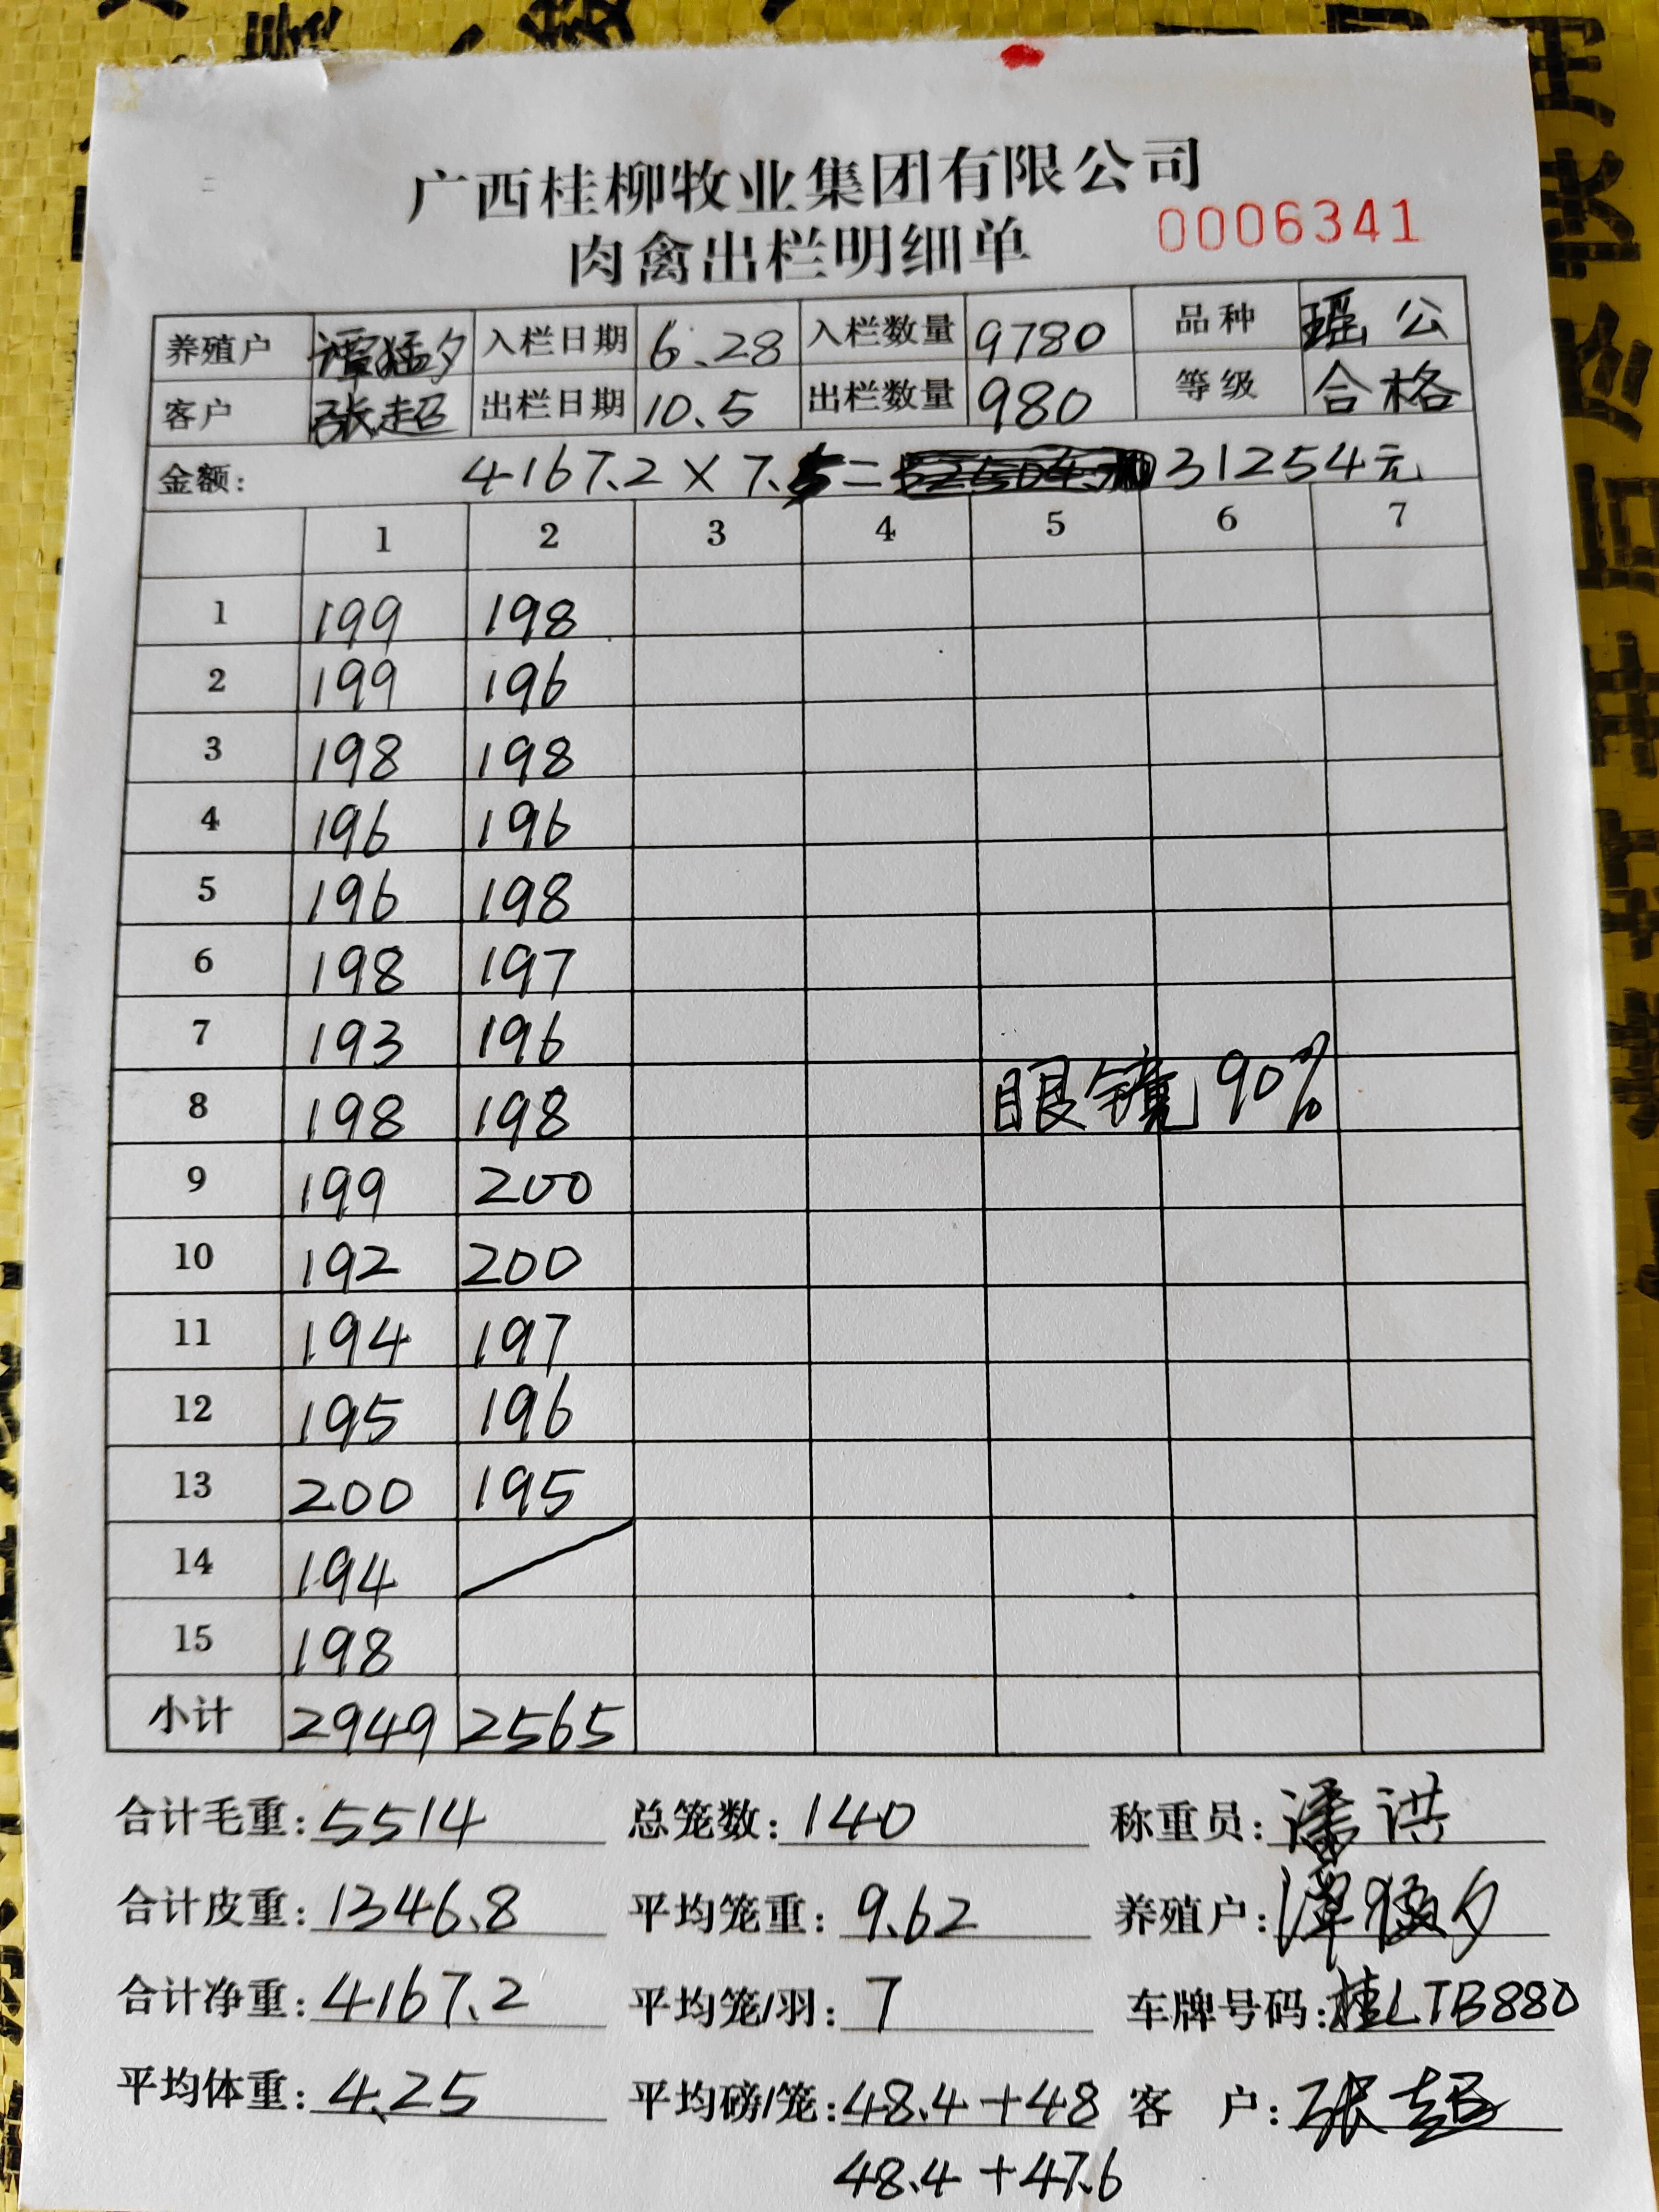 广西桂柳牧业集团有限公司
肉禽出栏明细单 0006341
养殖户 谭猛夕 入栏日期 6.28 入栏数量 9780 品种 瑶公
客户 张超 出栏日期 10.5 出栏数量 980 等级 合格
金额: 4167.2×7.5= 31254元
1 2 3 4 5 6 7
1 199 198
2 199 196
3 198 198
4 196 196
5 196 198
6 198 197
7 193 196
8 198 198 眼镜90%
9 199 200
10 192 200
11 194 197
12 195 196
13 200 195
14 194
15 198
小计 2949 2565
合计毛重: 5514 总笼数: 140 称重员: 潘洪
合计皮重: 1346.8 平均笼重: 9.62 养殖户: 谭猛夕
合计净重: 4167.2 平均笼/羽: 7 车牌号码: 桂LTB880
平均体重: 4.25 平均磅/笼: 48.4+48 客 户: 张超
48.4+47.6